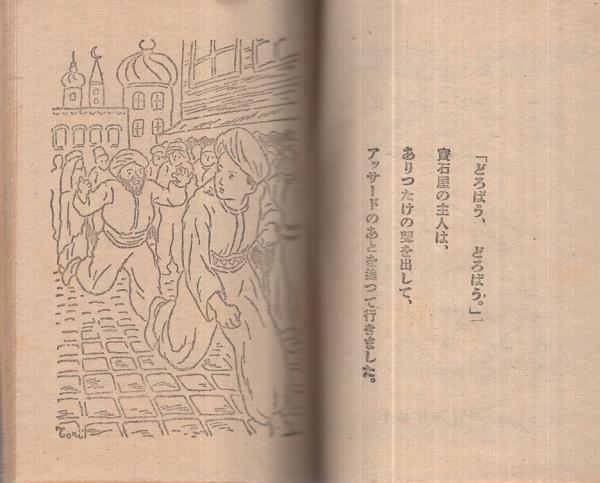 「どろばう、 どろばう。」
寶石屋の主人は、
ありつたけの聲を出して、
アッサードのあとを追つて行きました。
Toru